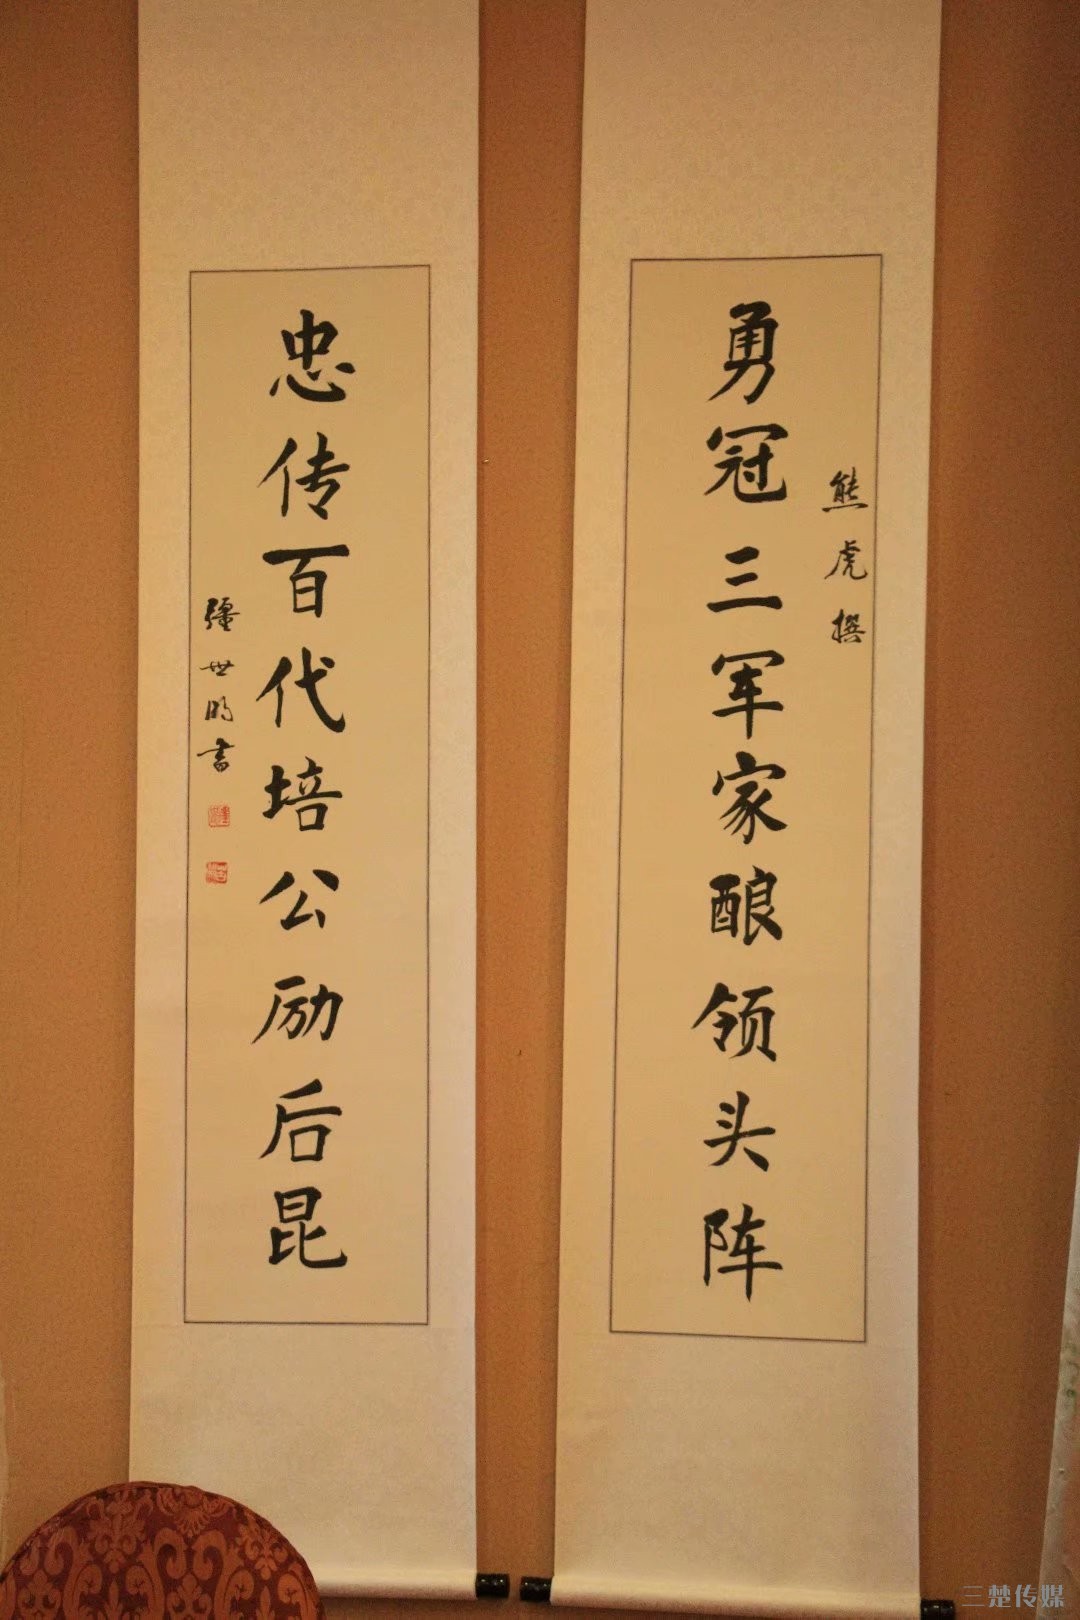 熊虎撰
勇冠三军家酿领头阵
忠传百代培公励后昆
疆世明书
三楚传媒